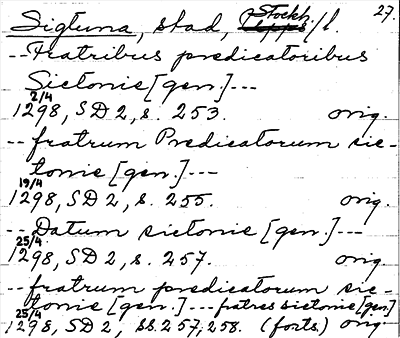 Sigtuna, stad, Stockh./l. 27.
-- Fratribus predicatoribus
Sictonie [gen.] ---
2/4
1298, SD 2, s. 253. orig.
-- fratrum Predicatorum sic-
tonie [gen.] ---
19/4
1298, SD 2, s. 255. orig.
-- Datum sictonie [gen.] ---
25/4
1298, SD 2, s. 257. orig.
-- fratrum predicatorum sic-
tonie [gen.] --- fratres sictonie [gen.]
25/4
1298, SD 2, ss. 257, 258. (forts.) orig.